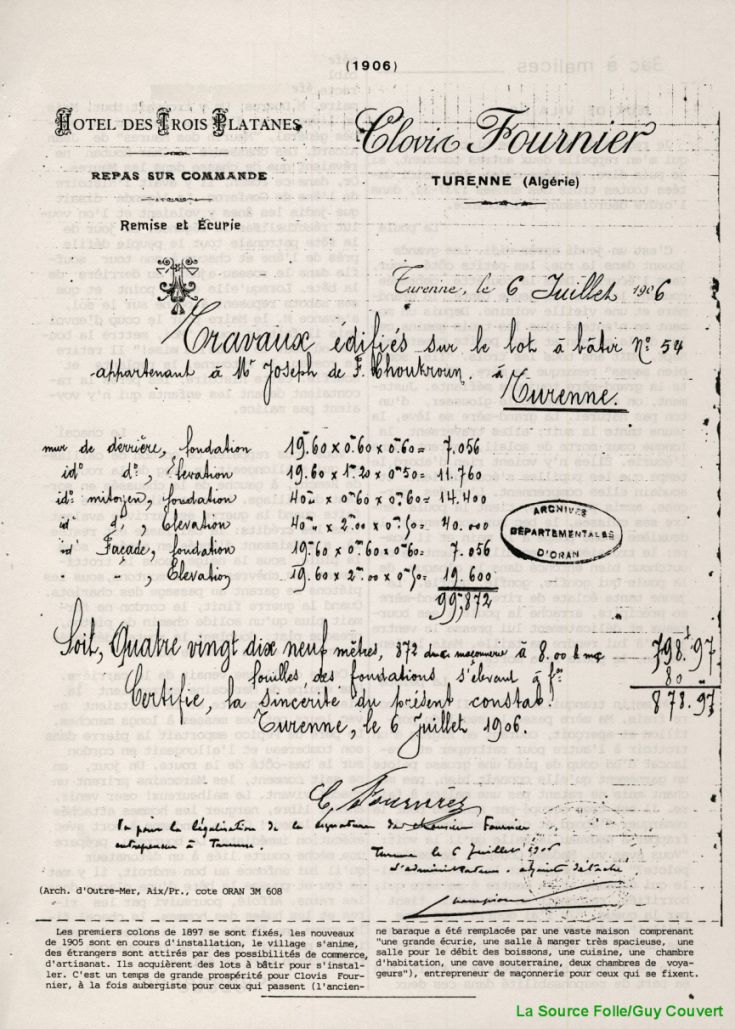 (1906)
HOTEL DES TROIS PLATANES
REPAS SUR COMMANDE
Remise et Écurie
Clovis Fournier
TURENNE (Algérie)
Turenne, le 6 Juillet 1906
Travaux édifiés sur le lot à bâtir N° 54
appartenant à Mr Joseph de F. Choukroun. à
Turenne.
mur de derrière, fondation 19m60 x 0m60 x 0m60 = 7.056
id° d°, Élévation 19.60 x 1m20 x 0m50 = 11.760
id° mitoyen, fondation 40m" x 0m60 x 0m60 = 14.400
id° d°, Élévation 40m" x 2m00 x 0m50 = 40.000
id° Façade, fondation 19m60 x 0m60 x 0m60 = 7.056
" " , Élévation 19m60 x 2m00 x 0m50 = 19.600
99,872
ARCHIVES
DÉPARTEMENTALES
D'ORAN
Soit, Quatre vingt dix neuf mètres, 872 de maçonnerie à 8.00 le mc 798.97
fouilles, des fondations s'élevant à fcs 80 "
Certifie, la sincerité du présent constat. 878.97
Turenne, le 6 Juillet 1906.
C. Fournier
Vu pour la légalisation de la signature de Monsieur Fournier
entrepreneur à Turenne.
Turenne le 6 Juillet 1906
L'administrateur adjoint détaché
(Arch. d'Outre-Mer, Aix/Pr., cote ORAN 3M 608
Les premiers colons de 1897 se sont fixés, les nouveaux
de 1905 sont en cours d'installation, le village s'anime,
des étrangers sont attirés par des possibilités de commerce,
d'artisanat. Ils acquièrent des lots à bâtir pour s'instal-
ler. C'est un temps de grande prospérité pour Clovis Four-
nier, à la fois aubergiste pour ceux qui passent (l'ancien-
ne baraque a été remplacée par une vaste maison comprenant
"une grande écurie, une salle à manger très spacieuse, une
salle pour le débit des boissons, une cuisine, une chambre
d'habitation, une cave souterraine, deux chambres de voya-
geurs"), entrepreneur de maçonnerie pour ceux qui se fixent.
La Source Folle/Guy Couvert